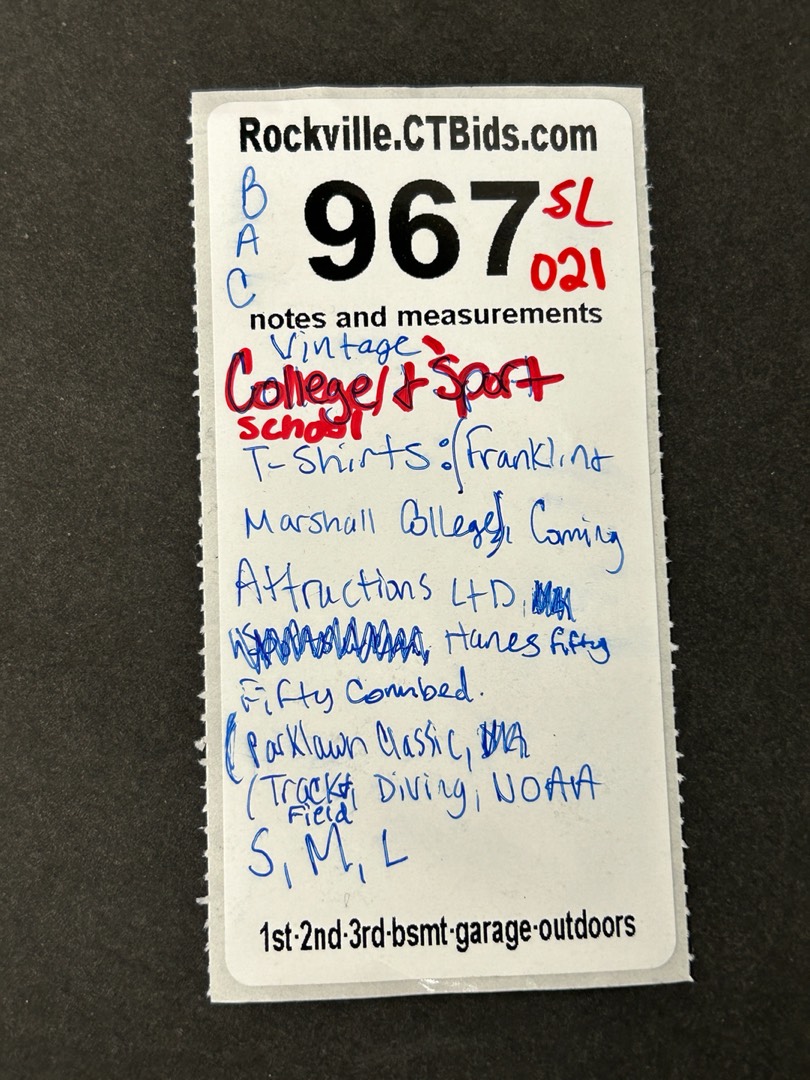 Rockville.CTBids.com
B
A
C
967
SL
021
notes and measurements
Vintage
College/+ Sport
school
T-Shirts: (Franklin +
Marshall College), Coming
Attractions LTD,
Hanes Fifty
Fifty Combed.
(Parklawn Classic,
(Track +, Diving, NOAA
Field
S, M, L
1st·2nd·3rd·bsmt·garage·outdoors